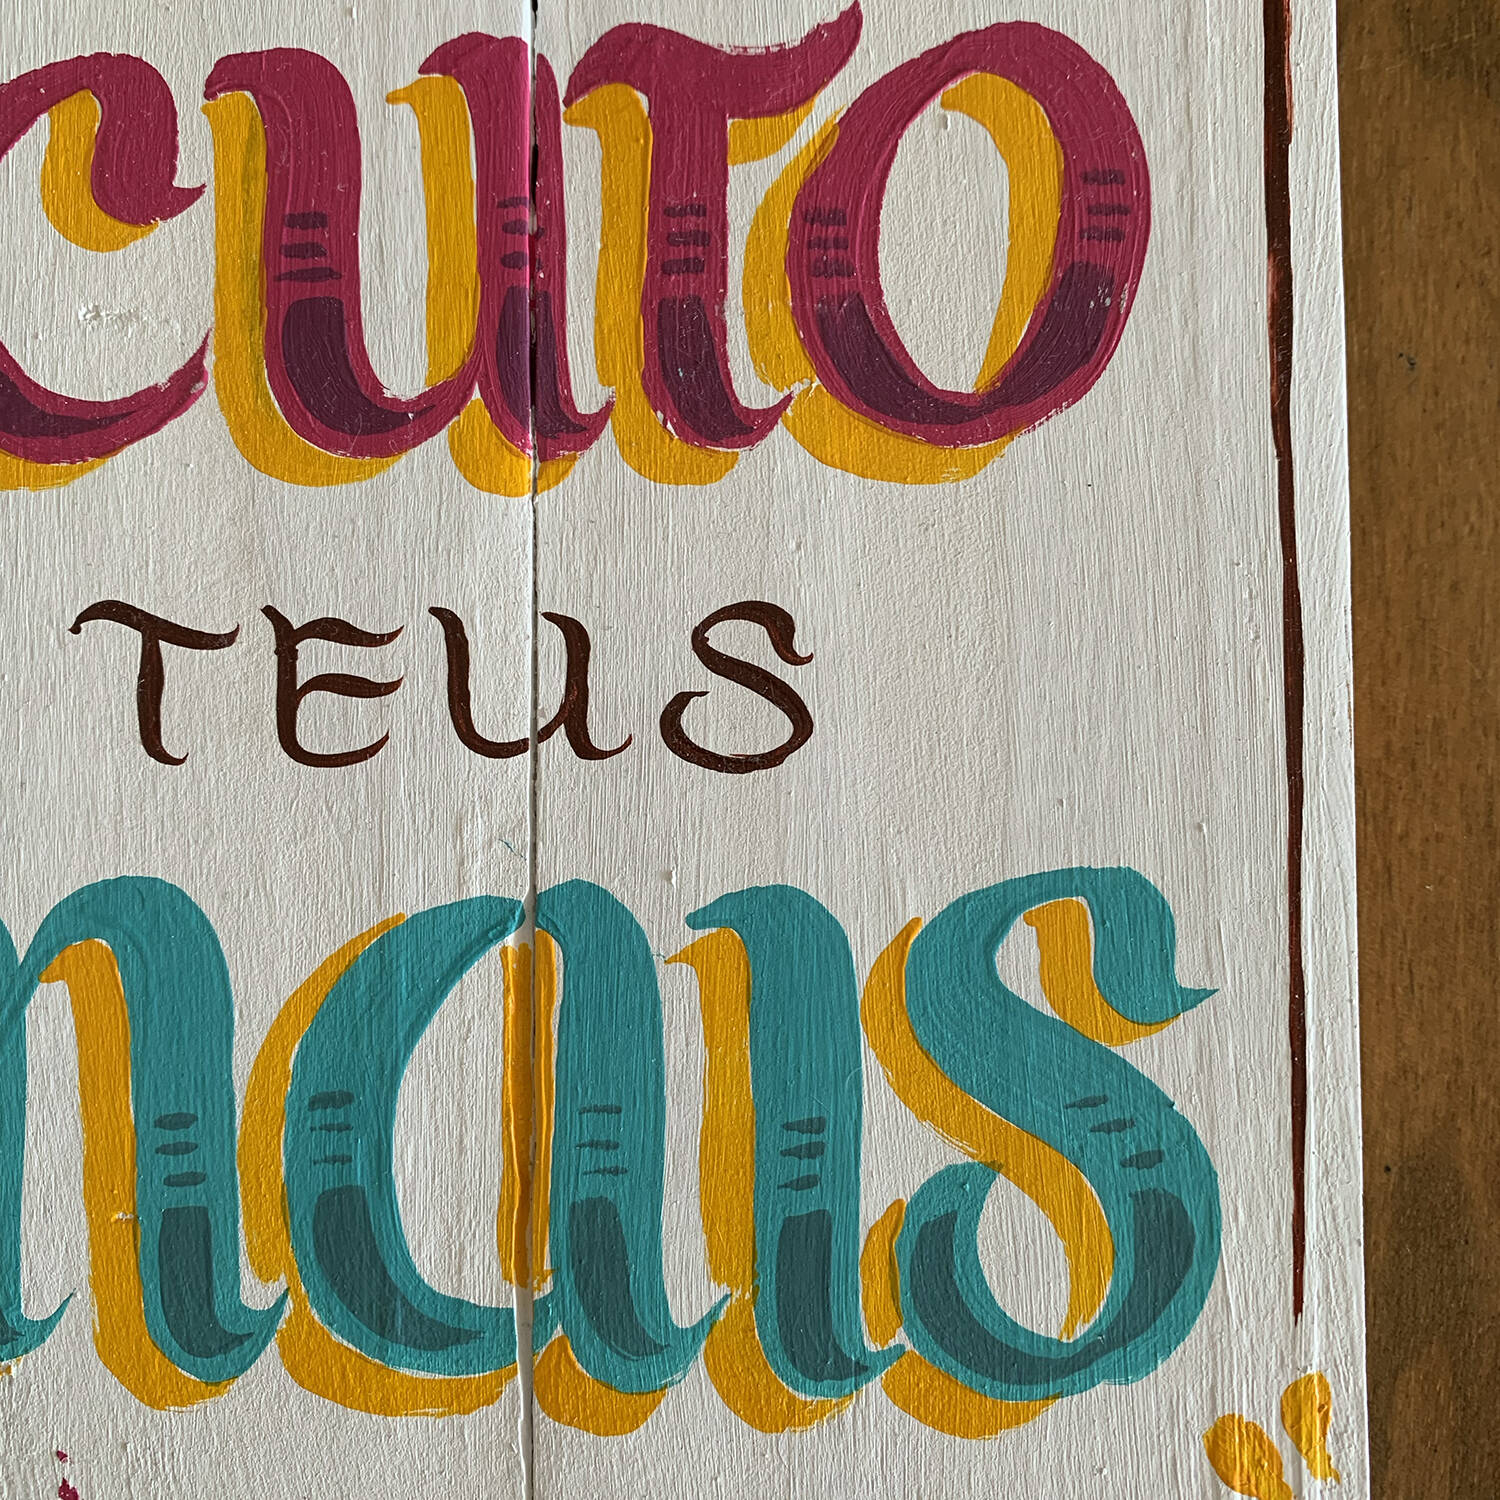 cuto
TEUS
nais